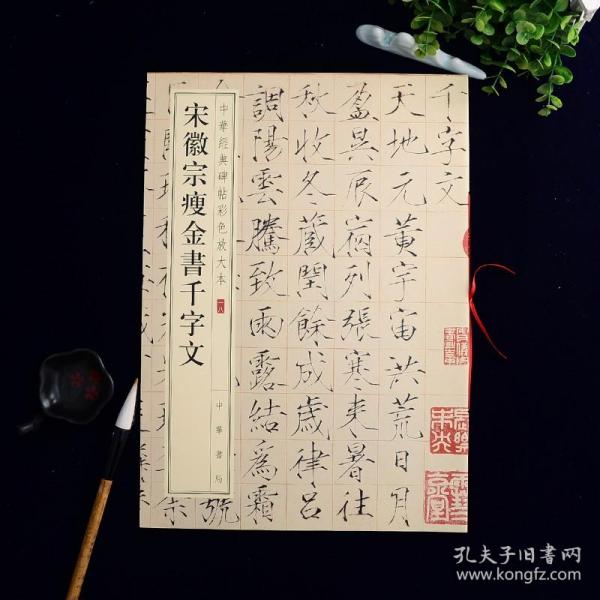 千字文
天地元黃宇宙洪荒日月
盈昃辰宿列張寒來暑往
秋收冬藏閏餘成歲律呂
調陽雲騰致雨露結為霜
中華經典碑帖彩色放大本
一八
宋徽宗瘦金書千字文
中華書局
號
孔夫子旧書网
www.kongfz.com